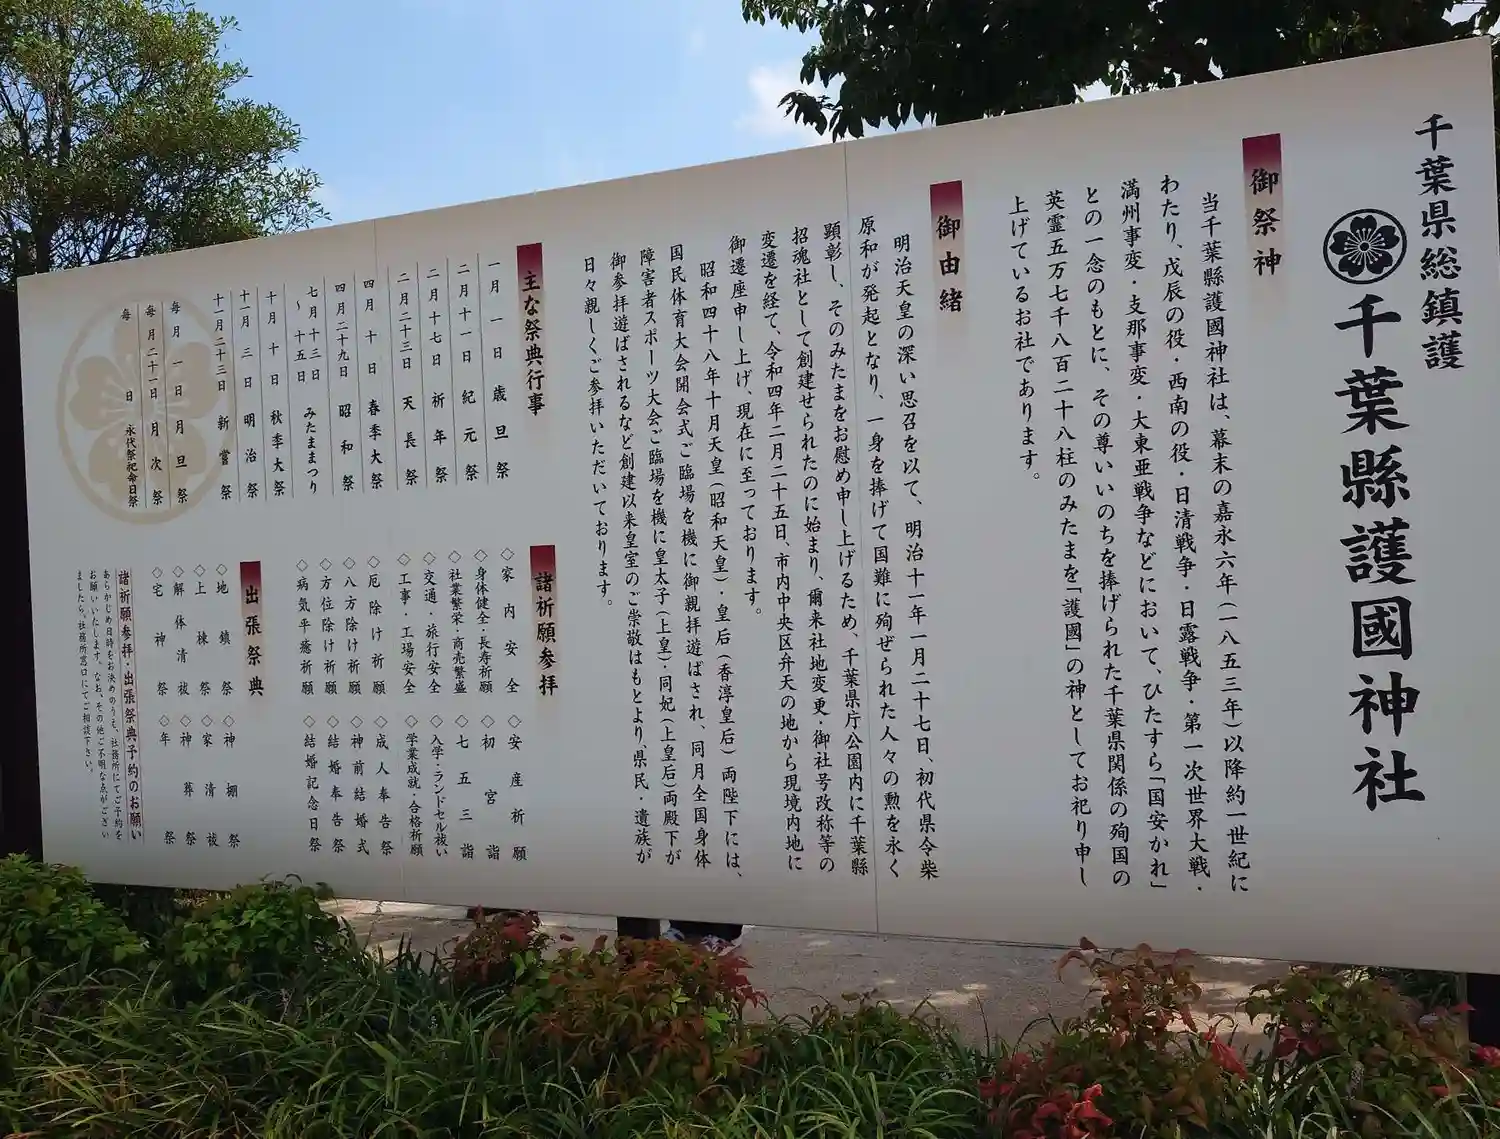 千葉県総鎮護
千葉縣護國神社
御祭神
当千葉縣護國神社は、幕末の嘉永六年(一八五三年)以降約一世紀に
わたり、戊辰の役・西南の役・日清戦争・日露戦争・第一次世界大戦・
満州事変・支那事変・大東亜戦争などにおいて、ひたすら「国安かれ」
との一念のもとに、その尊いいのちを捧げられた千葉県関係の殉国の
英霊五万七千八百二十八柱のみたまを「護國」の神としてお祀り申し
上げているお社であります。
御由緒
明治天皇の深い思召を以て、明治十一年一月二十七日、初代県令柴
原和が発起となり、一身を捧げて国難に殉ぜられた人々の勲を永く
顕彰し、そのみたまをお慰め申し上げるため、千葉県庁公園内に千葉縣
招魂社として創建せられたのに始まり、爾来社地変更・御社号改称等の
変遷を経て、令和四年二月二十五日、市内中央区弁天の地から現境内地に
御遷座申し上げ、現在に至っております。
昭和四十八年十月天皇(昭和天皇)・皇后(香淳皇后)両陛下には、
国民体育大会開会式ご臨場を機に御親拝遊ばされ、同月全国身体
障害者スポーツ大会ご臨場を機に皇太子(上皇)・同妃(上皇后)両殿下が
御参拝遊ばされるなど創建以来皇室のご崇敬はもとより、県民・遺族が
日々親しくご参拝いただいております。
主な祭典行事
一月一日 歳旦祭
二月十一日 紀元祭
二月十七日 祈年祭
二月二十三日 天長祭
四月十日 春季大祭
四月二十九日 昭和祭
七月十三日～十五日 みたままつり
十月十日 秋季大祭
十一月三日 明治祭
十一月二十三日 新嘗祭
毎月一日 月旦祭
毎月二十一日 月次祭
毎日 永代祭祀命日祭
諸祈願参拝
◇家内安全 ◇安産祈願
◇身体健全・長寿祈願 ◇初宮詣
◇社業繁栄・商売繁盛 ◇七五三詣
◇交通・旅行安全 ◇入学・ランドセル祓い
◇工事・工場安全 ◇学業成就・合格祈願
◇厄除け祈願 ◇成人奉告祭
◇八方除け祈願 ◇神前結婚式
◇方位除け祈願 ◇結婚奉告祭
◇病気平癒祈願 ◇結婚記念日祭
出張祭典
◇地鎮祭 ◇神棚祭
◇上棟祭 ◇家清祓
◇解体清祓 ◇神葬祭
◇宅神祭 ◇年祭
諸祈願参拝・出張祭典予約のお願い
あらかじめ日時をお決めのうえ、社務所にてご予約を
お願いいたします。なお、その他ご不明な点がござい
ましたら、社務所窓口にてご相談下さい。